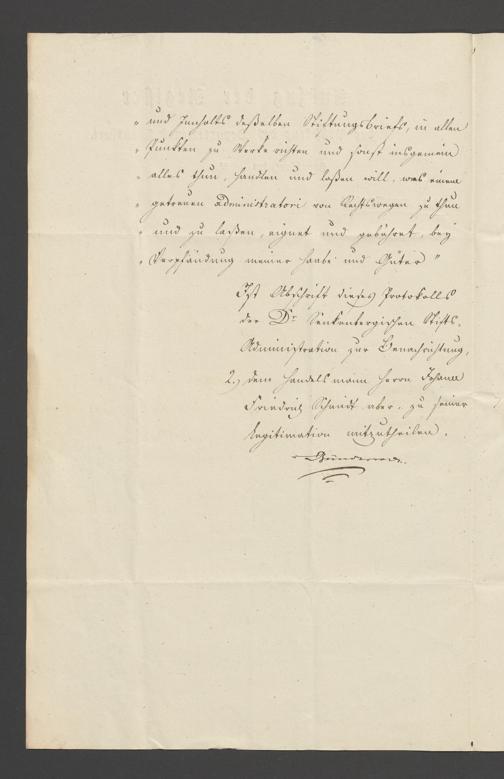 „ und Innhalts deßelben Stiftungsbriefs, in allen
„ Punkten zu Werke richten und sonst insgemein
„ alles thun, handlen und laßen will, was einem
„ getreuen administratori von Rechtswegen zu thun
„ und zu laßen, eignet und gebühret, bey
„ Verpfändung meiner Haabe und Güter "
Ist Abschrift dieses Protokolls
der Dr. Senkenbergischen Stifts-
Administration zur Benachrichtung,
2.) dem Handelsmann Herrn Johann
Friedrich Schmidt aber, zu seiner
Legitimation mitzutheilen.